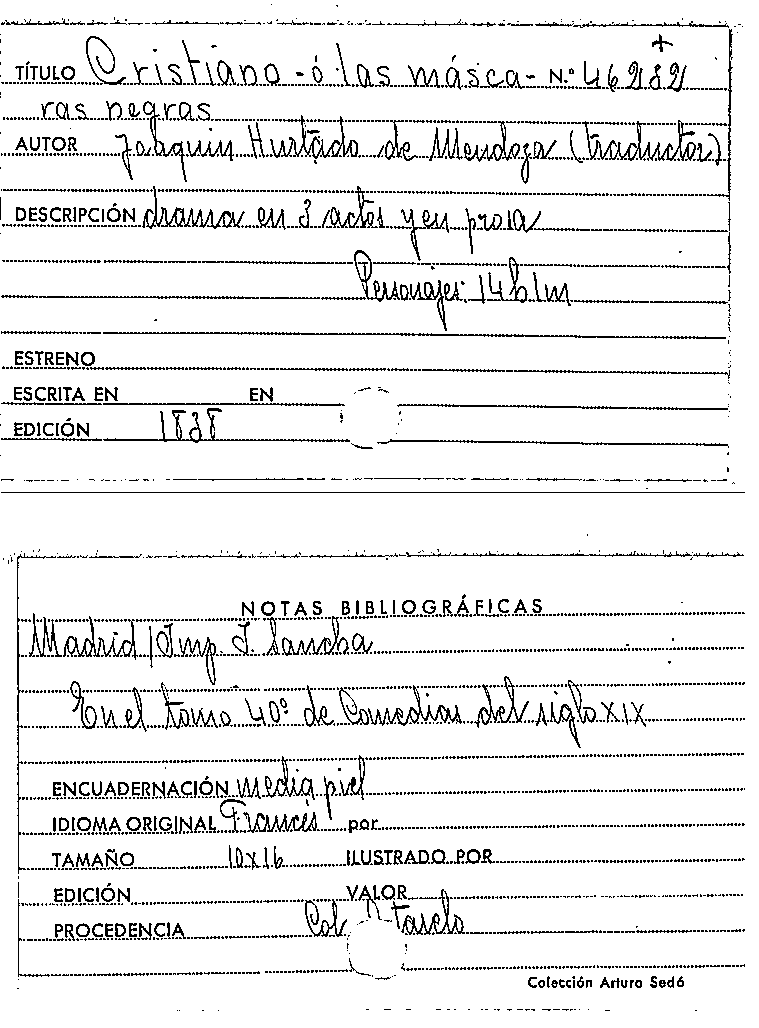 +
TÍTULO Cristiano - ó las másca- N.º 46282
ras negras
AUTOR Joaquin Hurtado de Mendoza (traductor)
DESCRIPCIÓN drama en 3 actos y en prosa
Personajes: 14 h 1 m
ESTRENO
ESCRITA EN EN
EDICIÓN 1838
NOTAS BIBLIOGRÁFICAS
Madrid / Imp. I. Sancha
En el tomo 40º de Comedias del siglo XIX
ENCUADERNACIÓN media piel
IDIOMA ORIGINAL Francés por
TAMAÑO 10x16 ILUSTRADO POR
EDICIÓN VALOR
PROCEDENCIA Col.
Colección Arturo Sedó